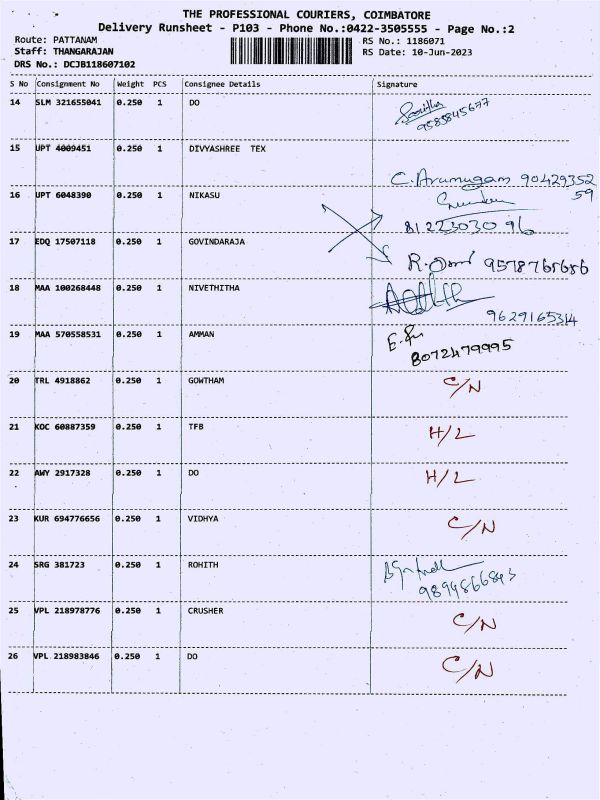 THE PROFESSIONAL COURIERS, COIMBATORE
Delivery Runsheet - P103 - Phone No.:0422-3505555 - Page No.:2
Route: PATTANAM RS No.: 1186071
Staff: THANGARAJAN RS Date: 10-Jun-2023
DRS No.: DCJB118607102
S No Consignment No Weight PCS Consignee Details Signature
14 SLM 321655041 0.250 1 DO
9585845677
15 UPT 4009451 0.250 1 DIVYASHREE TEX
C. Arumugam 90429352
59
16 UPT 6048390 0.250 1 NIKASU
8122303096
17 EDQ 17507118 0.250 1 GOVINDARAJA
R. 9578765686
18 MAA 100268448 0.250 1 NIVETHITHA
9629165314
19 MAA 570558531 0.250 1 AMMAN
8072479995
20 TRL 4918862 0.250 1 GOWTHAM C/N
21 KOC 60887359 0.250 1 TFB H/L
22 AWY 2917328 0.250 1 DO H/L
23 KUR 694776656 0.250 1 VIDHYA C/N
24 SRG 381723 0.250 1 ROHITH
9894866843
25 VPL 218978776 0.250 1 CRUSHER C/N
26 VPL 218983846 0.250 1 DO C/N